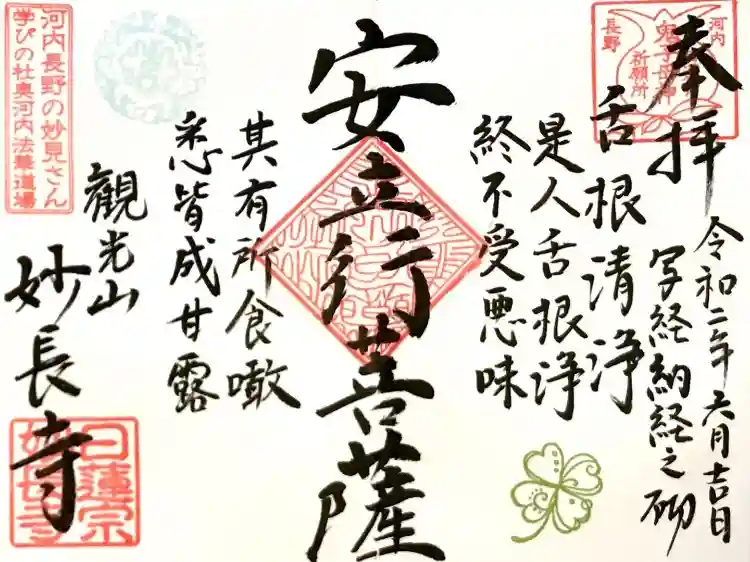 奉拝
令和二年 六月吉日
写経納経之砌
舌根清浄
是人舌根浄
終不受悪味
安立行菩薩
其有所食噉
悉皆成甘露
観光山
妙長寺
河内
長野
鬼子母神
祈願所
河内長野の妙見さん
学びの社奥河内法華道場
日蓮宗
妙長寺